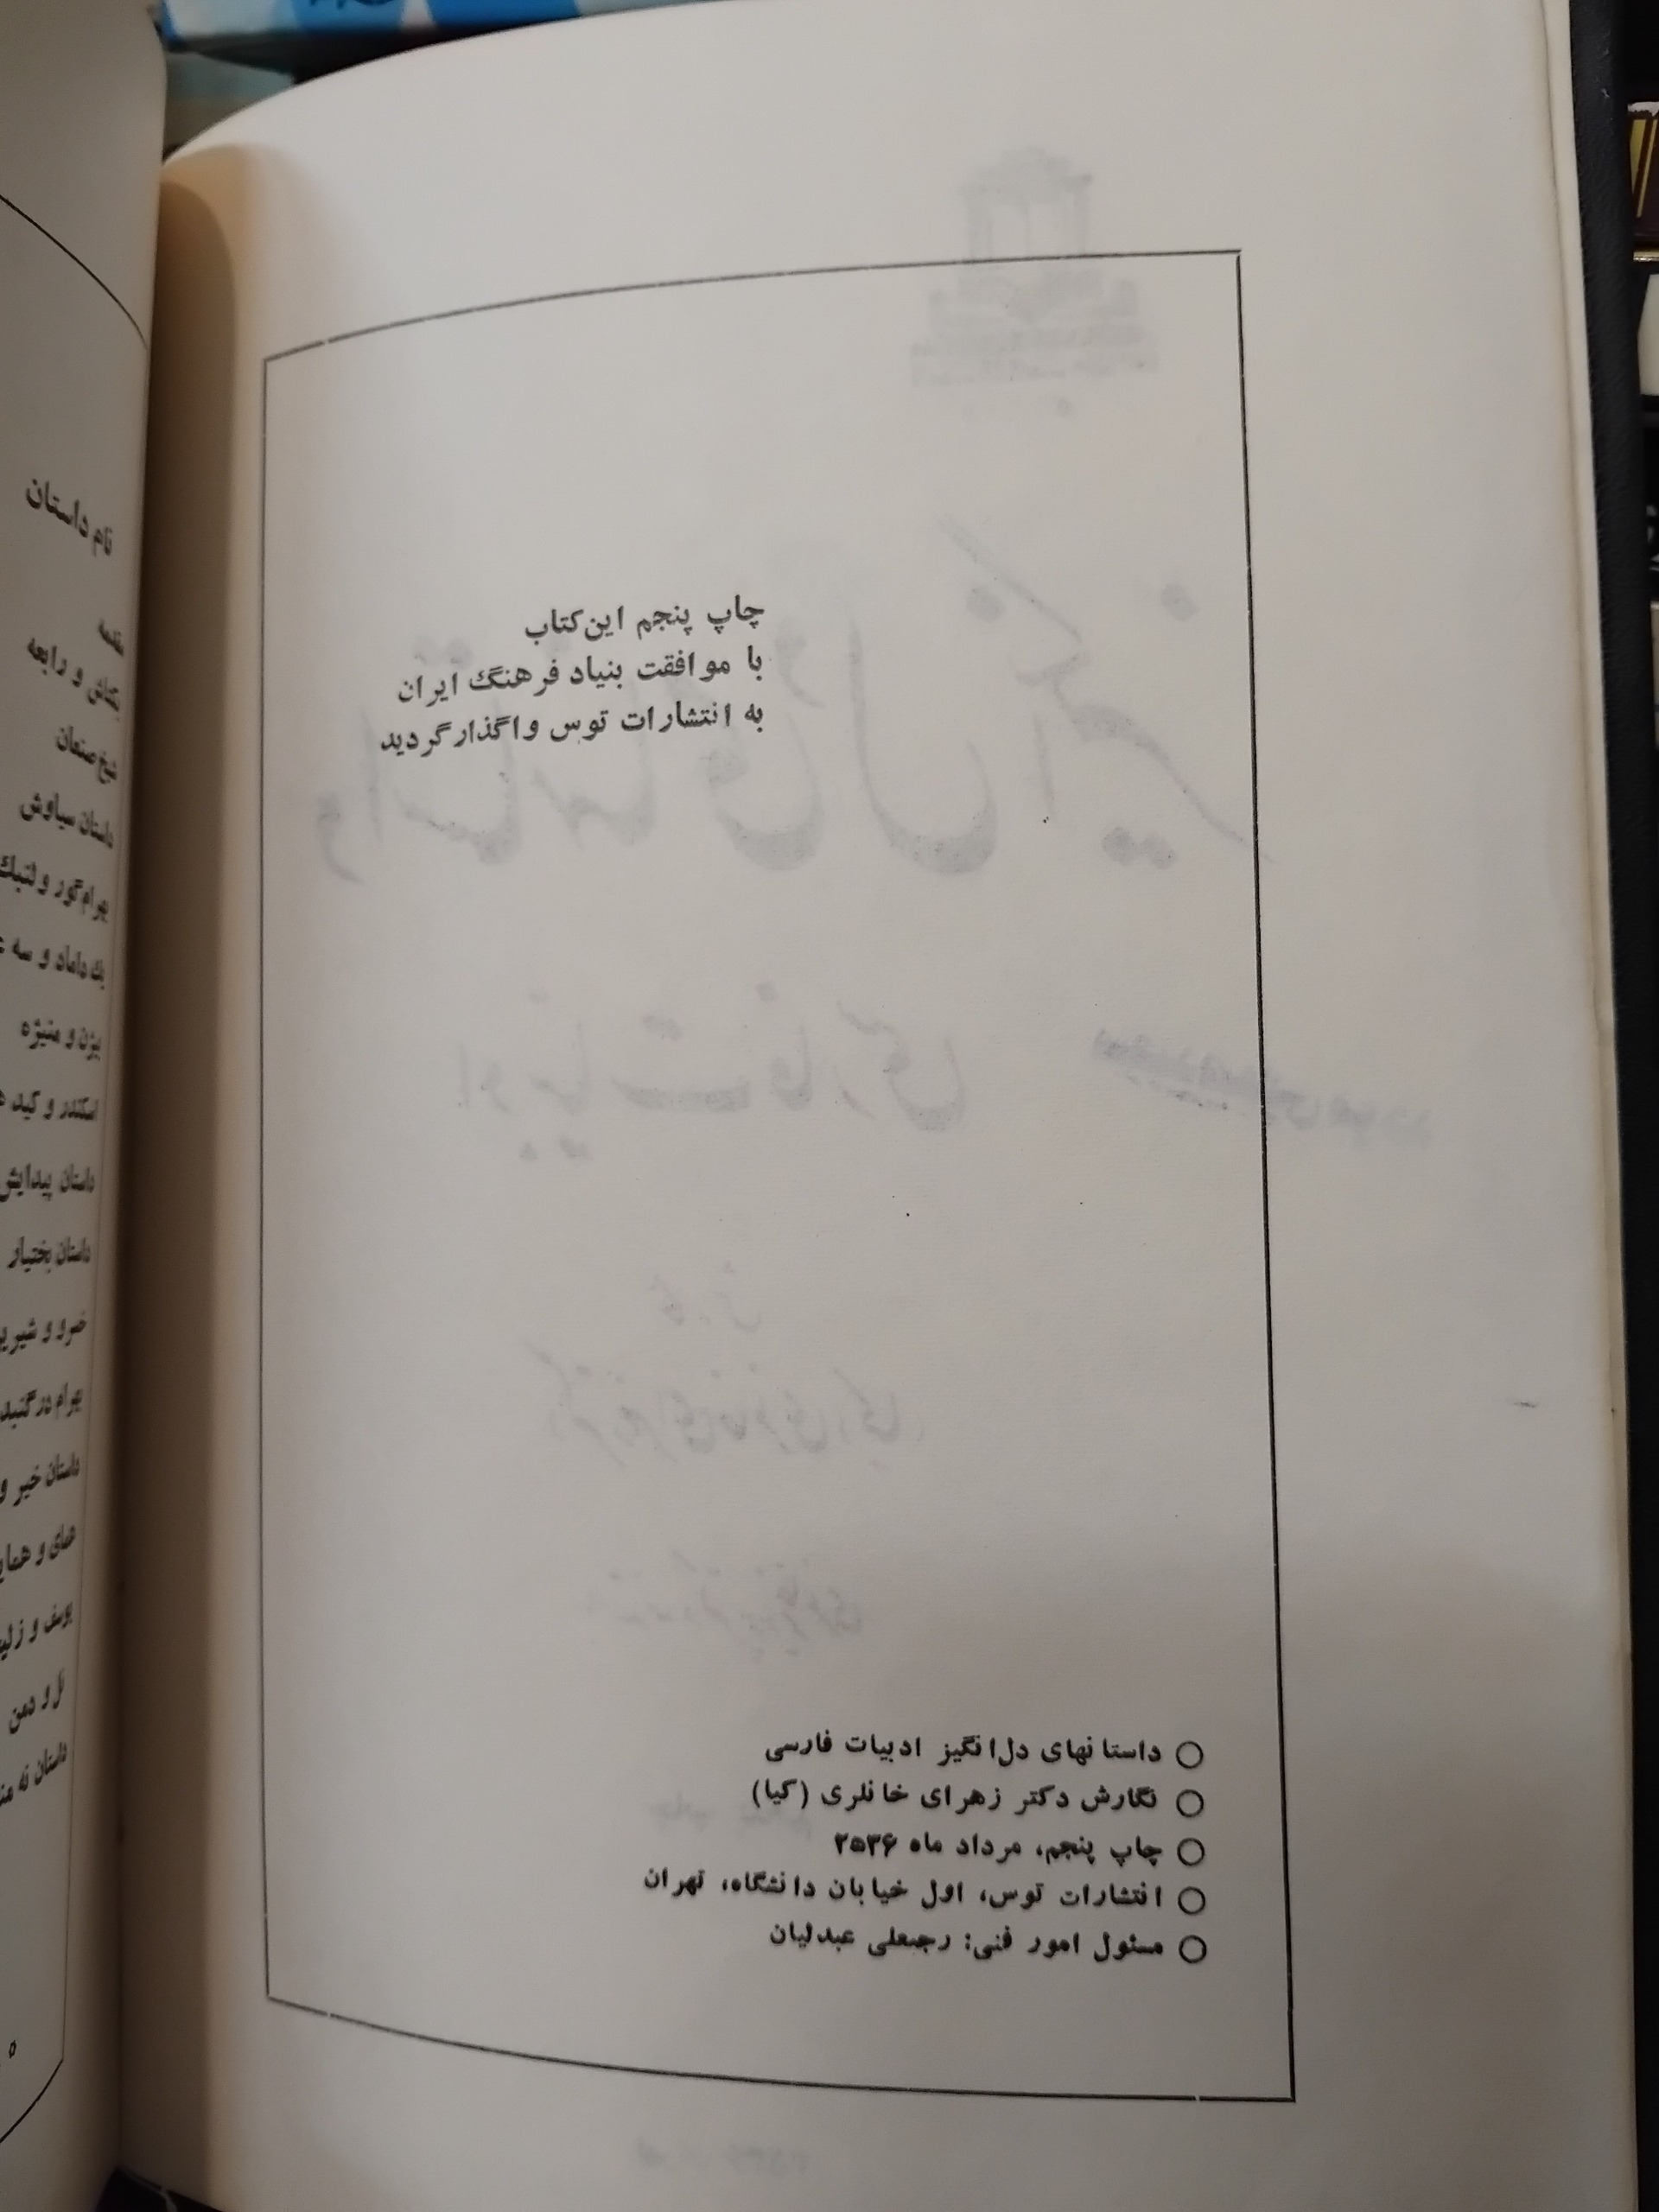 چاپ پنجم این کتاب
با موافقت بنیاد فرهنگ ایران
به انتشارات توس واگذار گردید
○ داستانهای دل‌انگیز ادبیات فارسی
○ نگارش دکتر زهرای خانلری (کیا)
○ چاپ پنجم، مرداد ماه ۲۵۳۶
○ انتشارات توس، اول خیابان دانشگاه، تهران
○ مسئول امور فنی: رجبعلی عبدلیان
نام داستان
مقدمه
بکتاش و رابعه
شیخ صنعان
داستان سیاوش
بهرام گور و لنبك
یك داماد و سه
بیژن و منیژه
اسکندر و کید
داستان پیدایش
داستان بختیار
خسرو و شیرین
بهرام در گنبد
داستان خیر و
همای و همای
یوسف و زلیخا
نل و دمن
داستان نه
۵